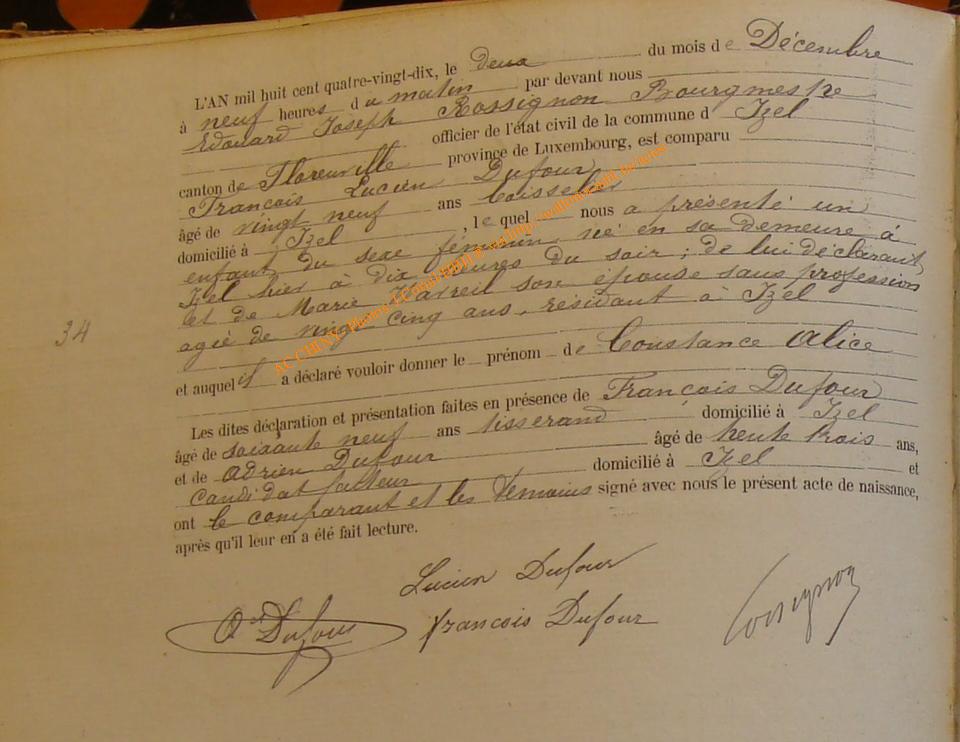 L'AN mil huit cent quatre-vingt-dix, le deux du mois de Décembre
à neuf heures du matin par devant nous
Edouard Joseph Rossignon Bourgmestre
officier de l'état civil de la commune d Izel
canton de Florenville province de Luxembourg, est comparu
François Lucien Dufour
âgé de vingt neuf ans
domicilié à Izel, le quel nous a présenté un
enfant du sexe féminin né en sa demeure à
Izel hier à dix heures du soir; de lui déclarant
et de Marie son épouse sans profession
agée de vingt cinq ans, résidant à Izel
34
et auquel il a déclaré vouloir donner le prénom de Constance Alice
Les dites déclaration et présentation faites en présence de François Dufour
âgé de soixante neuf ans tisserand domicilié à Izel
et de Adrien Dufour âgé de trente trois ans,
candidat facteur domicilié à Izel et
ont le comparant et les témoins signé avec nous le présent acte de naissance,
après qu'il leur en a été fait lecture.
Lucien Dufour
Ad Dufour François Dufour Rossignon